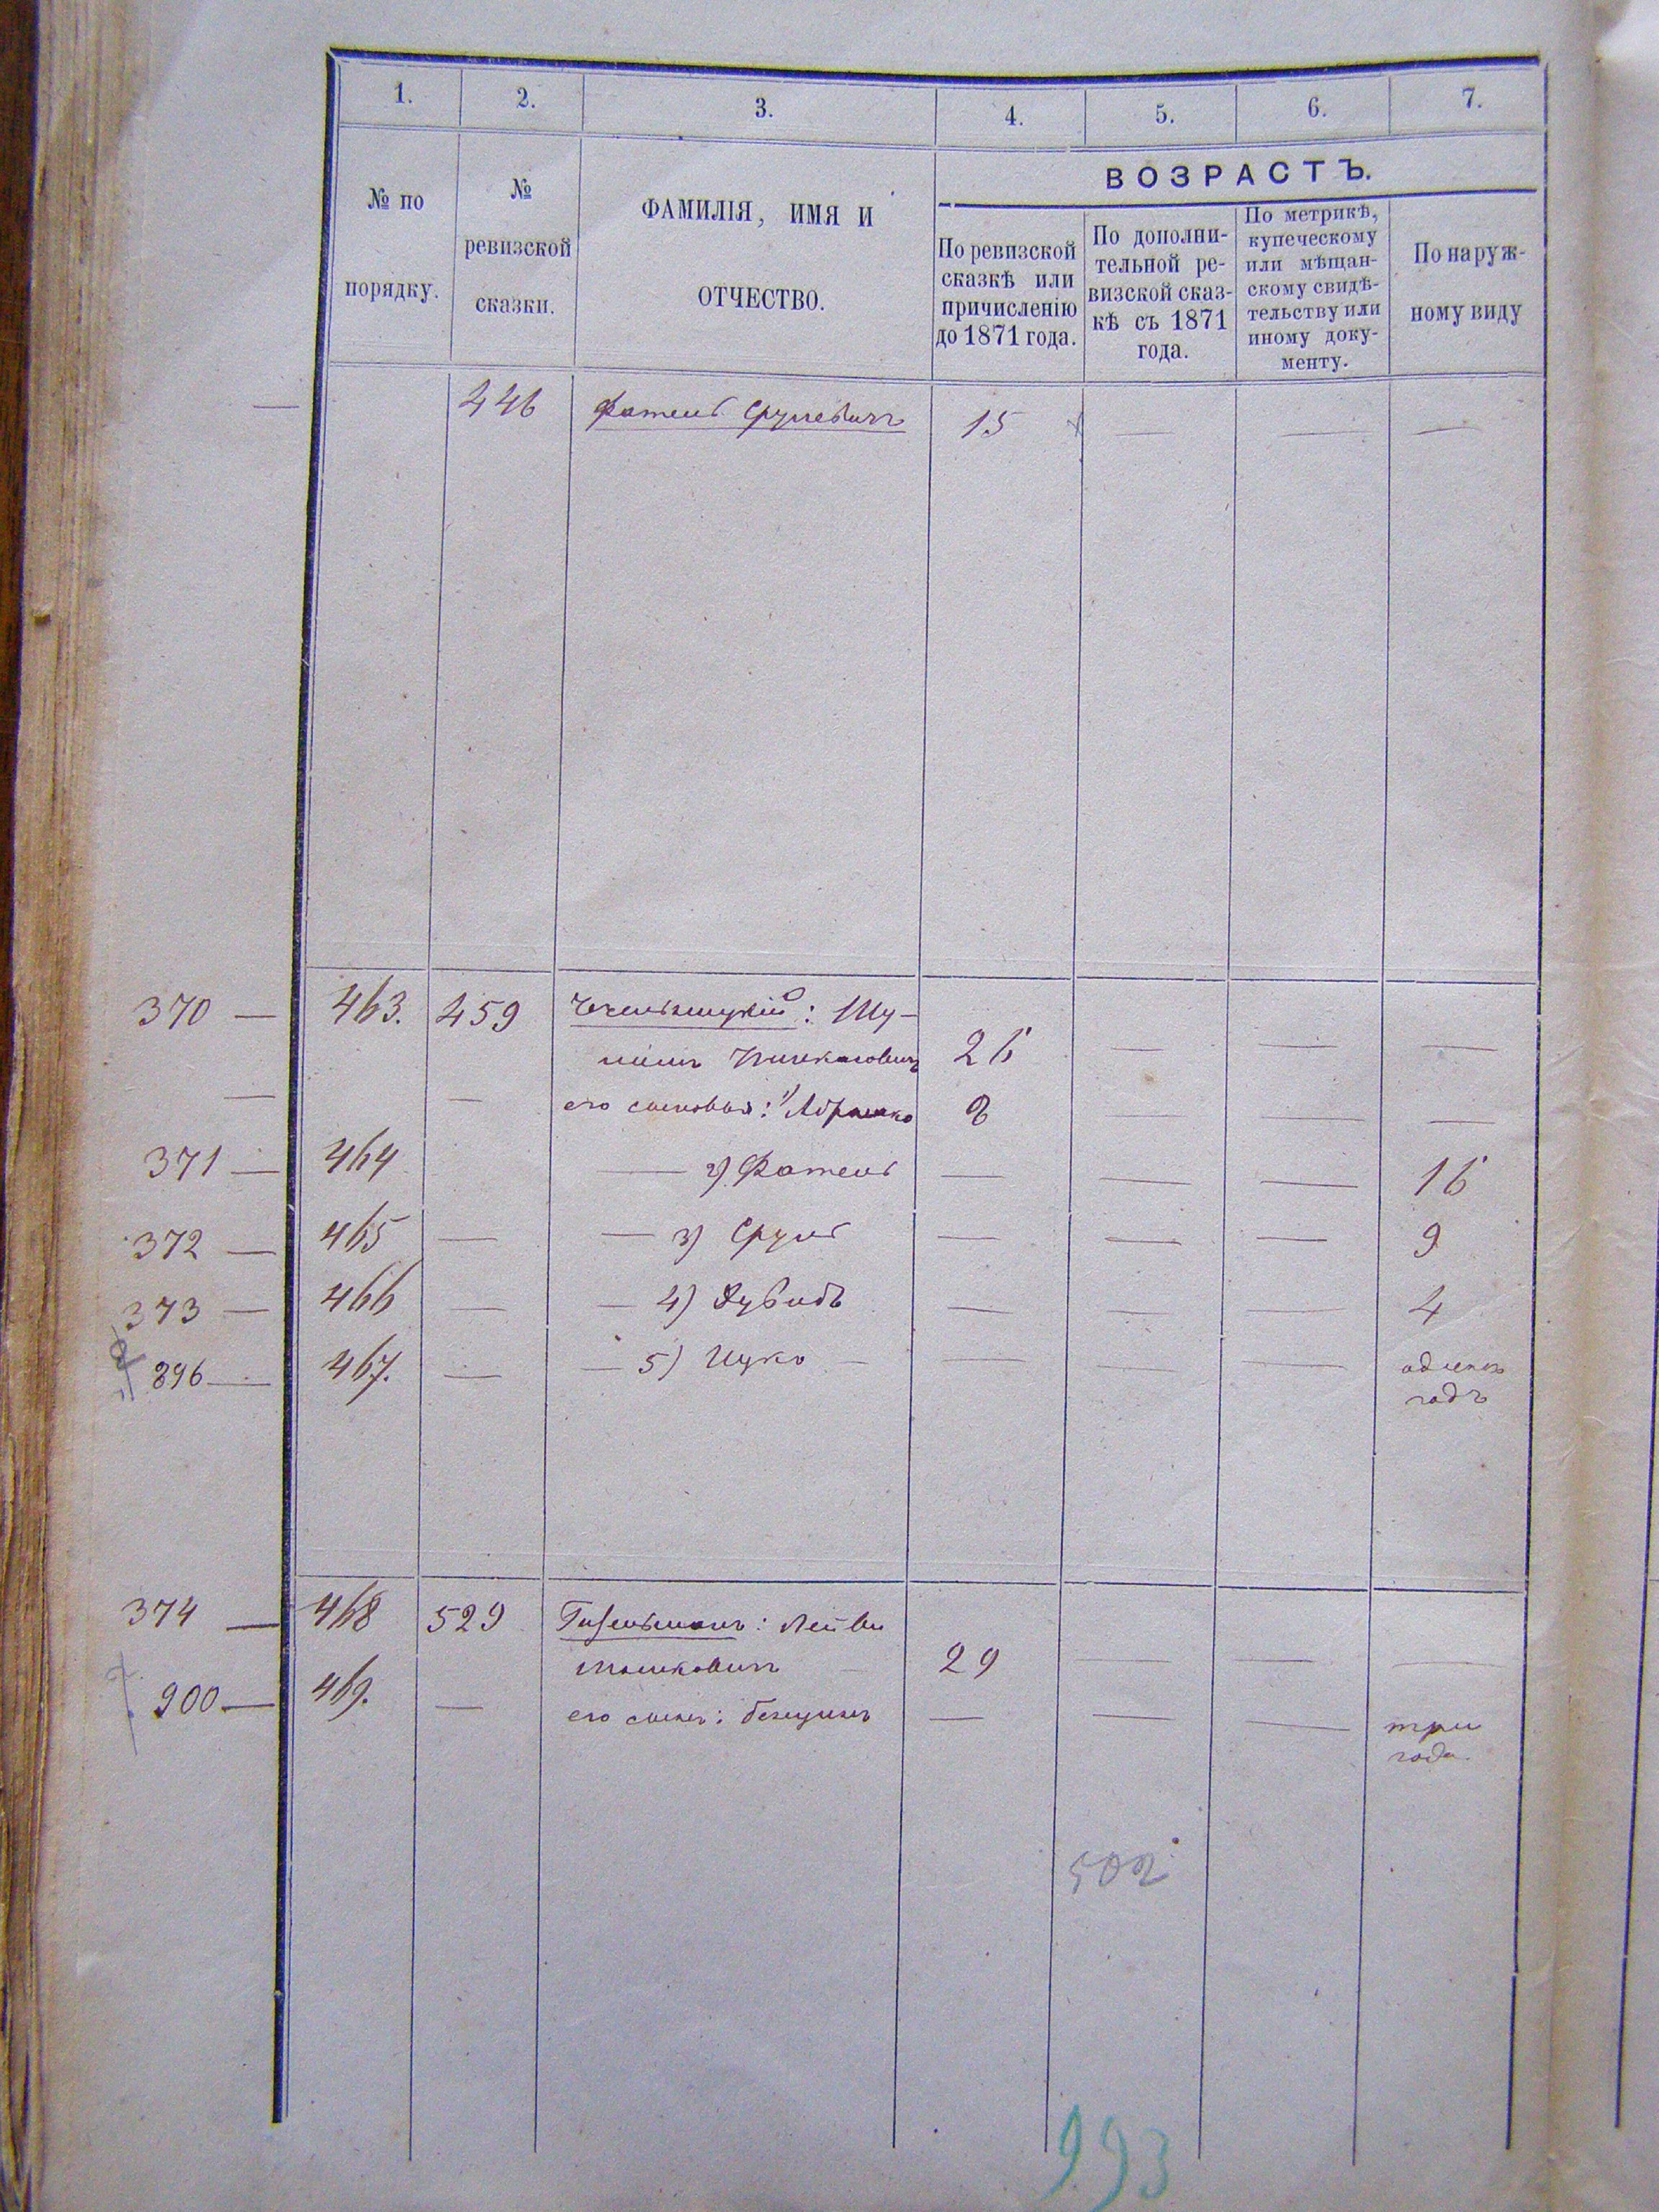 1. 2. 3. 4. 5. 6. 7.
№ по порядку.
№ ревизской сказки.
ФАМИЛІЯ, ИМЯ И ОТЧЕСТВО.
ВОЗРАСТЪ.
По ревизской
сказкѣ или
причисленію
до 1871 года.
По дополни-
тельной ре-
визской сказ-
кѣ съ 1871
года.
По метрикѣ,
купеческому
или мѣщан-
скому свидѣ-
тельству или
иному доку-
менту.
По наруж-
ному виду
— 446 Фатель Срулевичъ 15 — — —
370 — 463. 459 Чечельницкій: Шу-
Пинкасовичъ 26 — — —
— — его сыновья: 1) Абрамко 8 — —
371 — 464 — 2) Фатель — — — 16
372 — 465 — — 3) Сруль — — — 9
373 — 466 — — 4) Дувидъ — — — 4
896 — 467. — — 5) Ицко — — — — одинъ
годъ
374 — 468 529 Гизельманъ: Лейви
Мошковичъ — 29 — — —
900 — 469. — его сынъ: Бенціонъ — — — три
года.
502
993